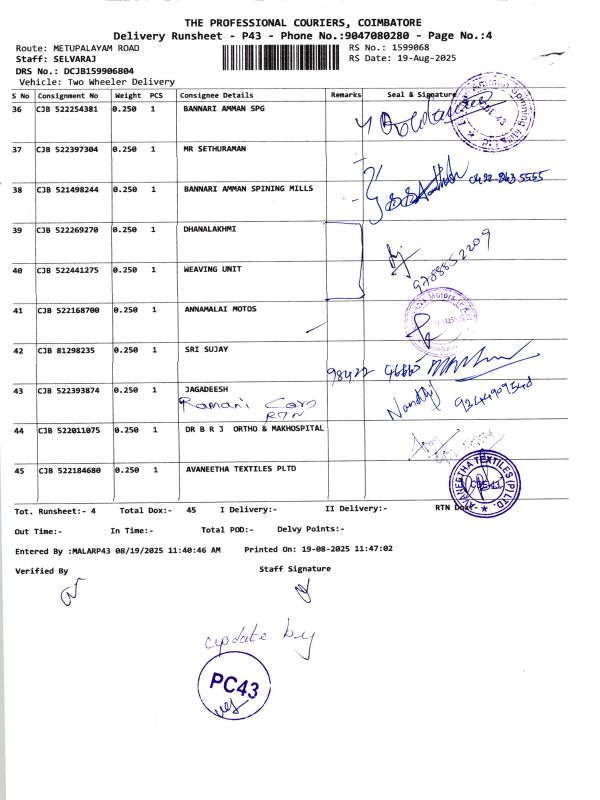 THE PROFESSIONAL COURIERS, COIMBATORE
Delivery Runsheet - P43 - Phone No.:9047080280 - Page No.:4
Route: METUPALAYAM ROAD RS No.: 1599068
Staff: SELVARAJ RS Date: 19-Aug-2025
DRS No.: DCJB159906804
Vehicle: Two Wheeler Delivery
S No Consignment No Weight PCS Consignee Details Remarks Seal & Signature
36 CJB 522254381 0.250 1 BANNARI AMMAN SPG
37 CJB 522397304 0.250 1 MR SETHURAMAN
38 CJB 521498244 0.250 1 BANNARI AMMAN SPINING MILLS 0422-243 5555
39 CJB 522269270 0.250 1 DHANALAKHMI
9788852209
40 CJB 522441275 0.250 1 WEAVING UNIT
41 CJB 522168700 0.250 1 ANNAMALAI MOTOS
42 CJB 81298235 0.250 1 SRI SUJAY
98422
43 CJB 522393874 0.250 1 JAGADEESH
Ramani Cars
RTN
9344909548
44 CJB 522011075 0.250 1 DR B R J ORTHO & MAKHOSPITAL
45 CJB 522184680 0.250 1 AVANEETHA TEXTILES PLTD
AVANEETHA TEXTILES (P) LTD.
Tot. Runsheet:- 4 Total Dox:- 45 I Delivery:- II Delivery:- RTN Dox:-
Out Time:- In Time:- Total POD:- Delvy Points:-
Entered By :MALARP43 08/19/2025 11:40:46 AM Printed On: 19-08-2025 11:47:02
Verified By Staff Signature
update by
PC43